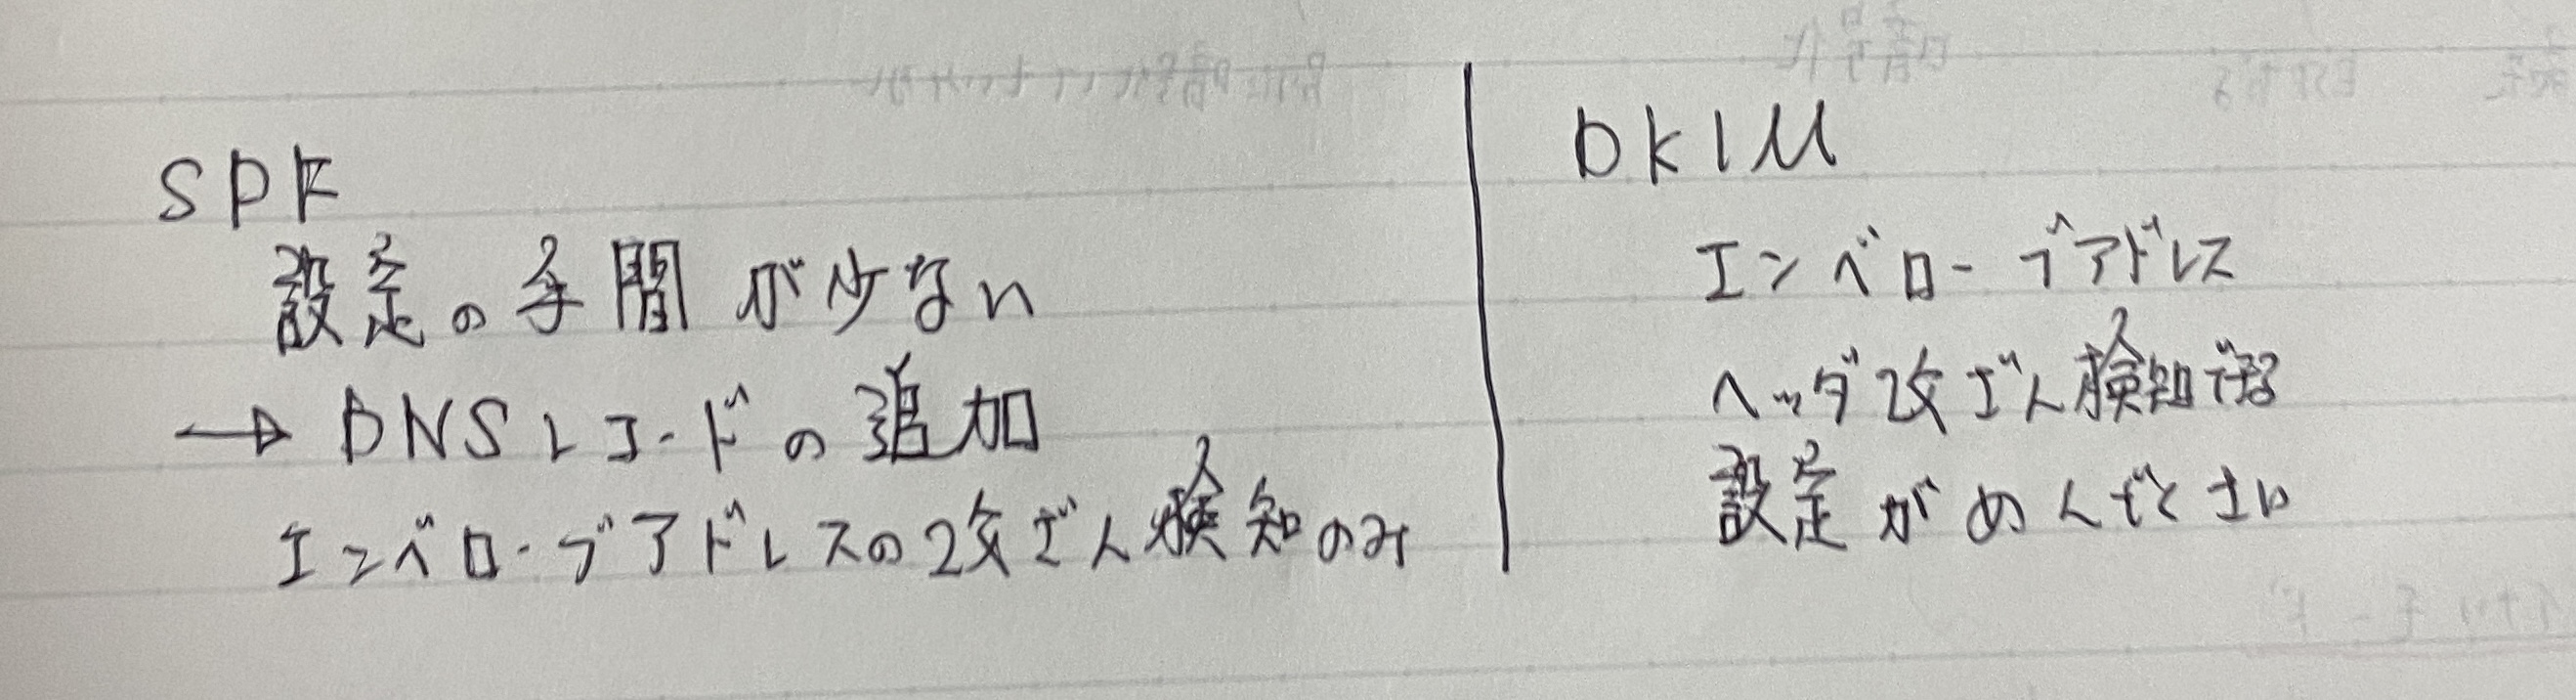 SPF
設定の手間が少ない
→ DNSレコードの追加
エンベローブアドレスの改ざん検知のみ
DKIM
エンベローブアドレス
ヘッダ改ざん検知できる
設定がめんどくさい